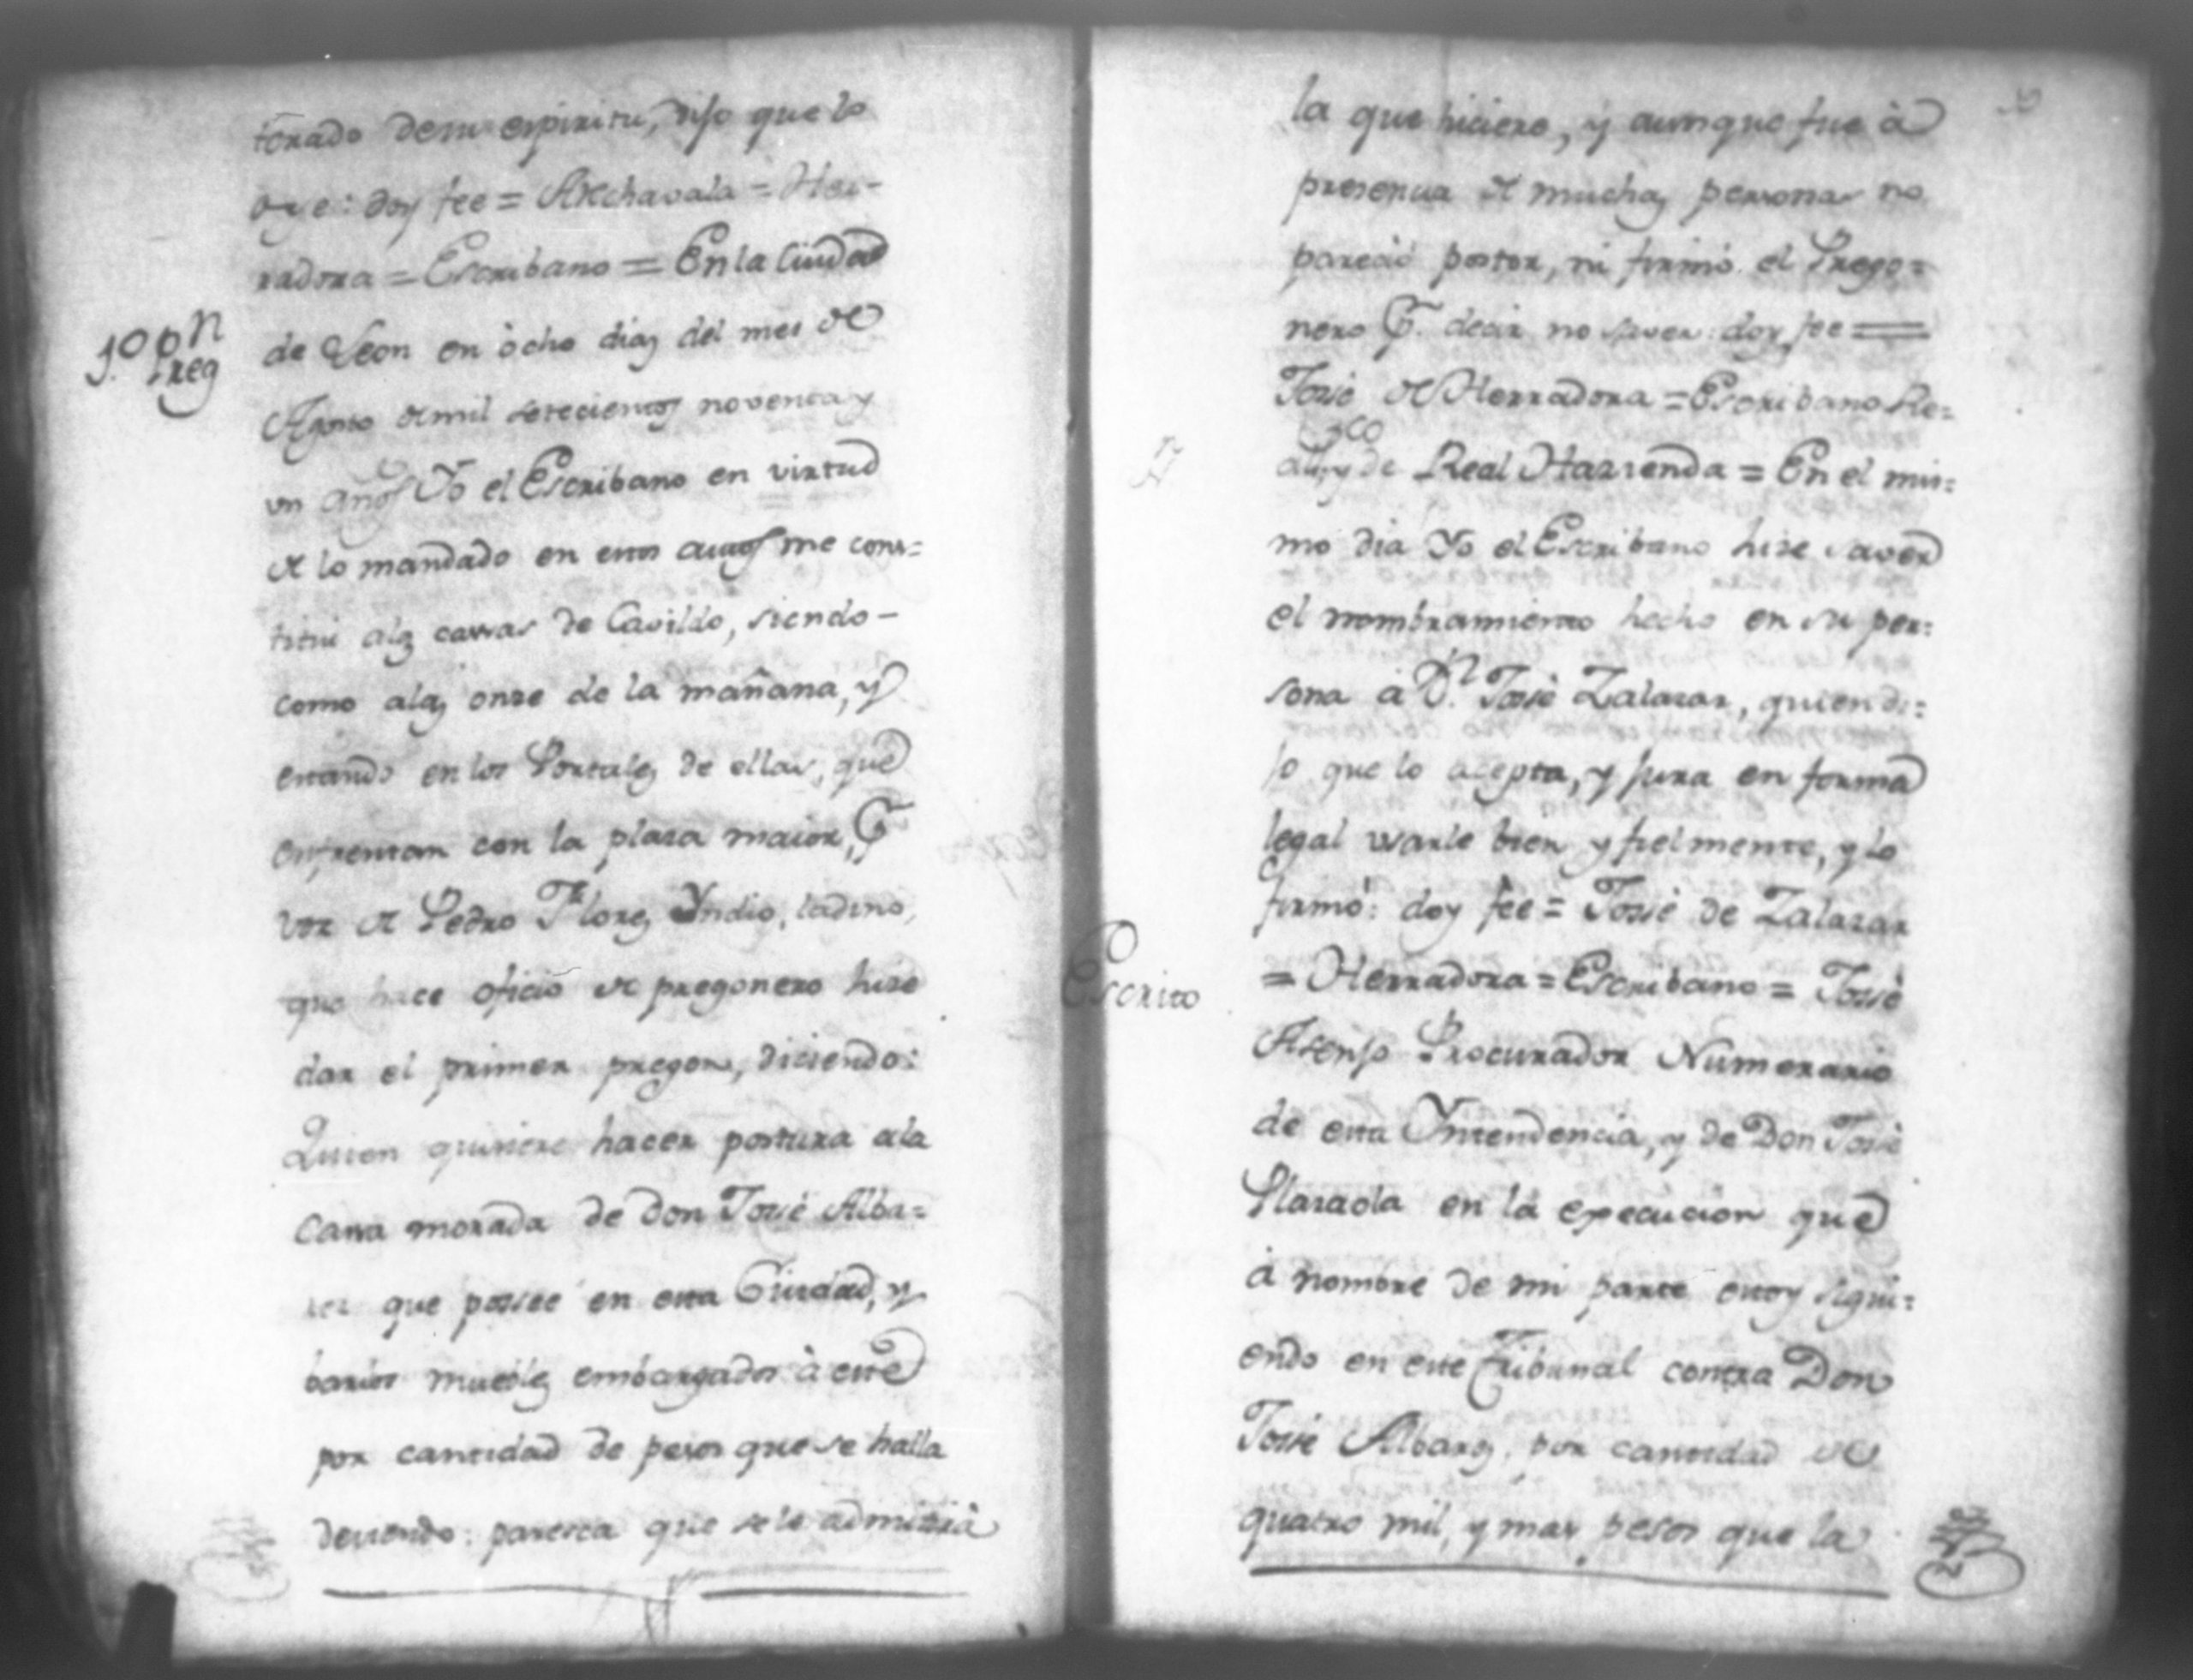 terado de su espiritu, dijo que lo
oye: doy fee = Arechavala = Her-
radora = Escribano = En la Ciudad
1.o Preg.n
de Leon en ôcho dias del mes de
Agosto de mil setecientos noventa y
un años Yo el Escribano en virtud
de lo mandado en estos autos me cons=
titui alas casas de Cavildo, siendo-
como alas onze de la mañana, y
estando en los Portales de ellas, que
enfrentan con la plaza maior, P.
voz de Pedro Flores Yndio, ladino,
que hace oficio de pregonero hize
dar el primer pregon, diciendo:
Quien quisiere hacer postura ala
casa morada de Don José Alba=
rez que posee en esta Ciudad, y
barios muebles embargados à este
por cantidad de pesos que se halla
deviendo: paresca que se le admitirà
la que hiciere, y aunque fue à
presencia de muchas personas no
pareció postor, ni firmó el Prego=
nero P. decir no saver: doy fee =
José de Herradora = Escribano Re=
al, y pco de Real Hazienda = En el mis=
mo dia Yo el Escribano hize saver
el nombramiento hecho en su per=
sona à D.n José Zalazar, quien di=
jo que lo acepta, y jura en forma
legal usarle bien y fielmente, y lo
firmó: doy fee = José de Zalazar
= Herradora = Escribano = José
Escrito
Asenjo Procurador Numerario
de esta Yntendencia, y de Don José
Plazaola en la execucion que
à nombre de mi parte estoy sigui=
endo en este Tribunal contra Don
José Albares, por cantidad de
quatro mil, y mas pesos que la